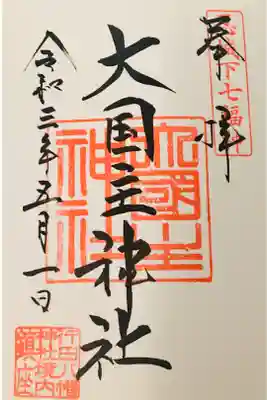 奉拝
下七福
大国主神社
大國主神社
令和三年五月一日
行田八幡神社境内鎮座